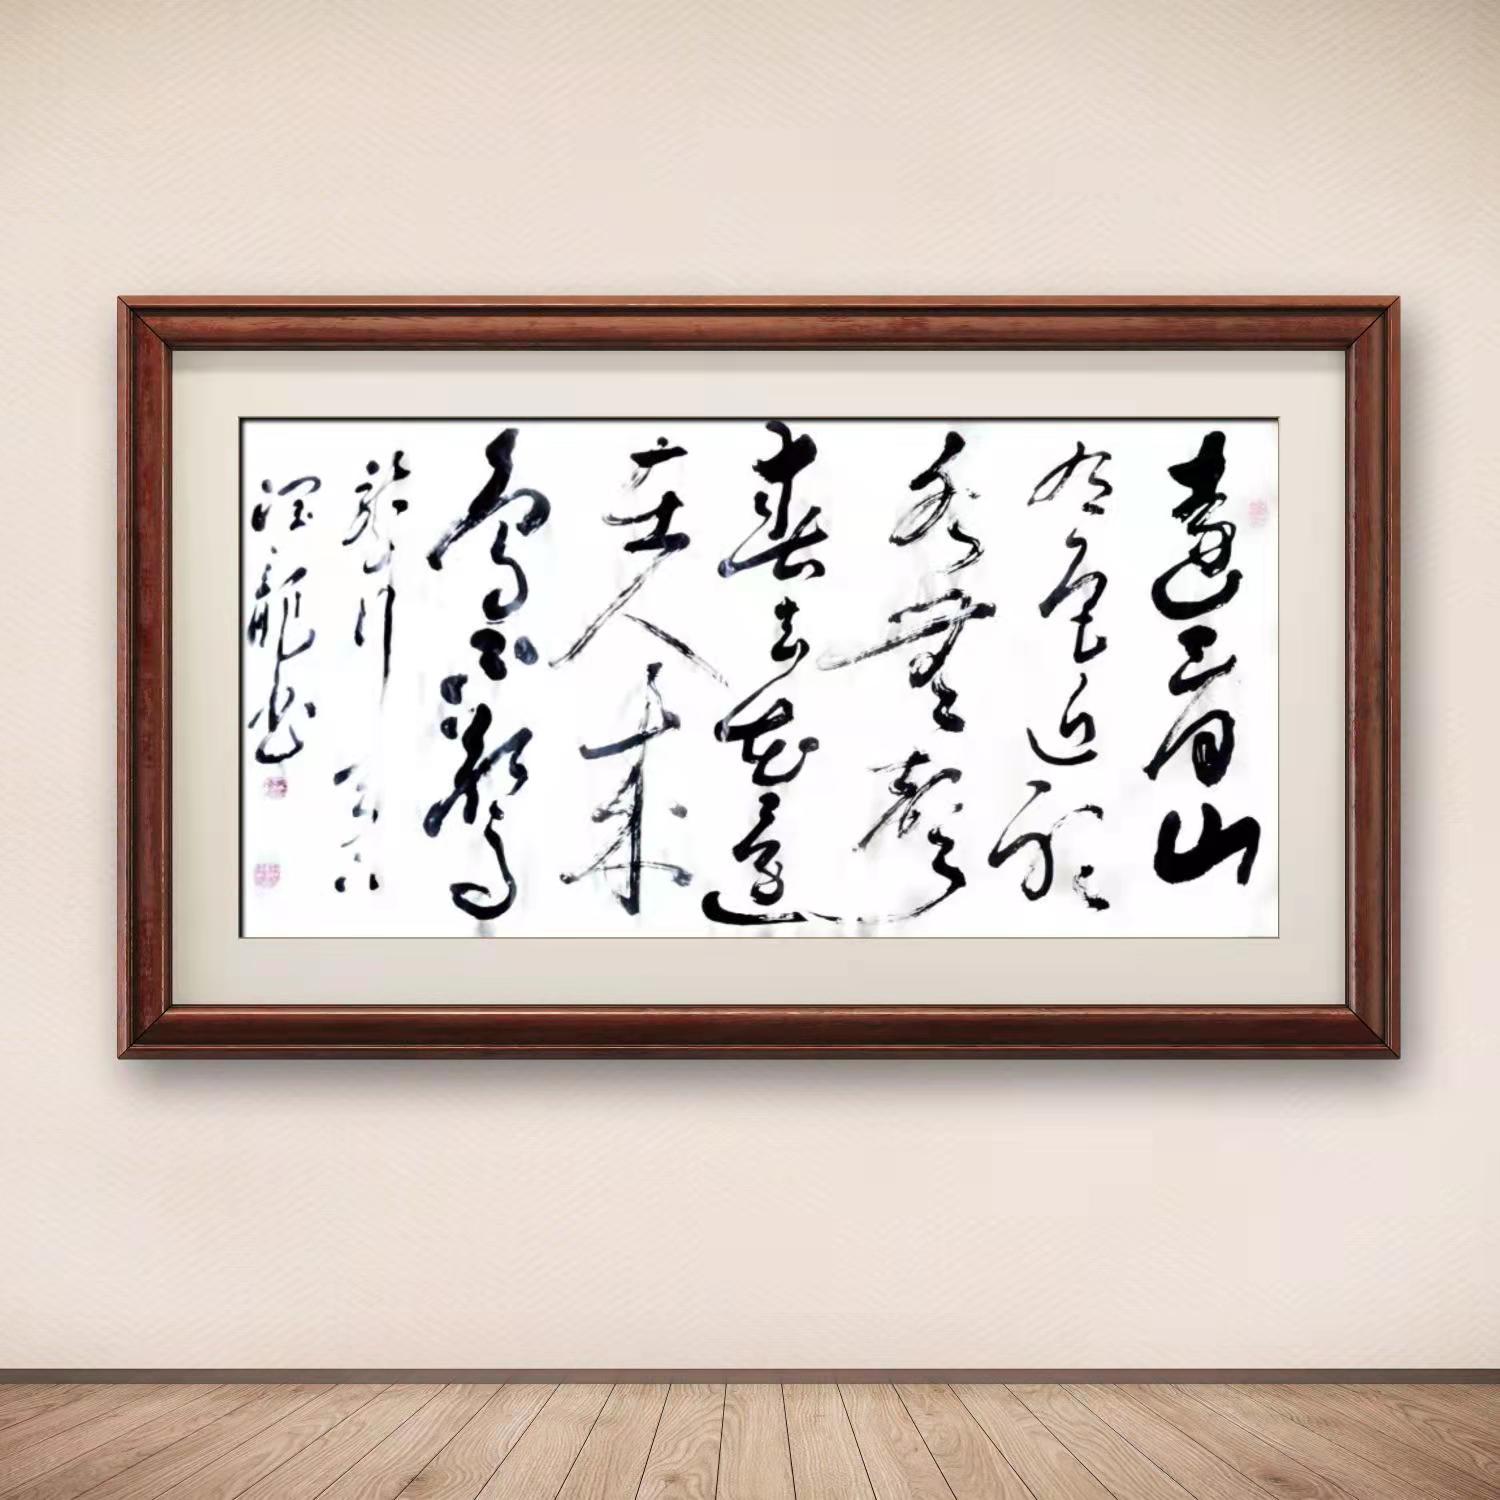 遠看山
有色近聽
水無聲
春去花還
在人來
鳥不驚
龍書